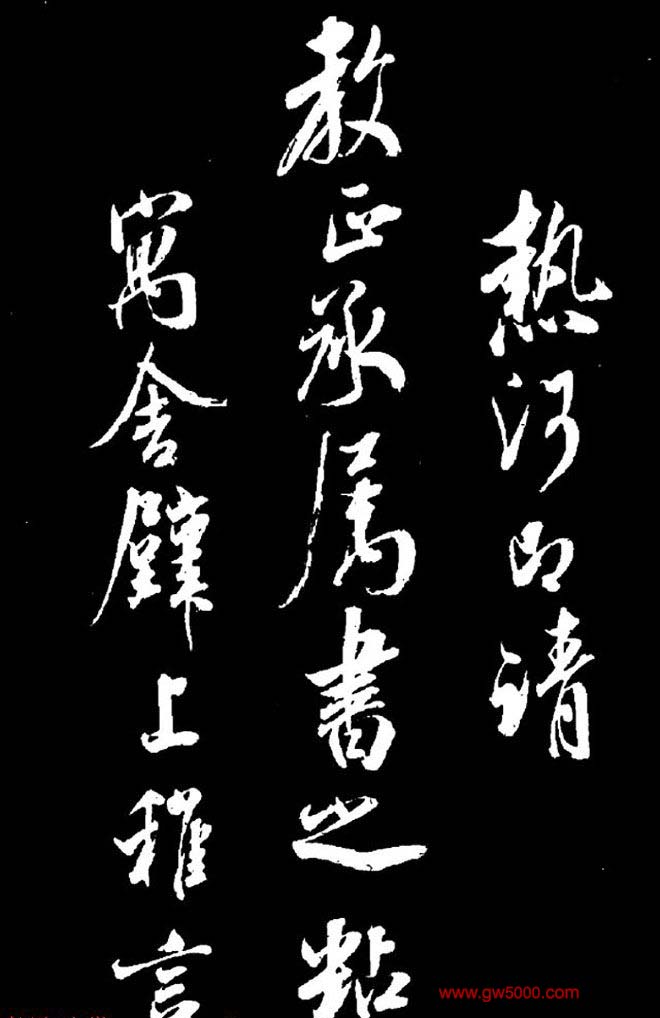 熱河即請
教正承属書之點
寓舍壁上稚言
www.gw5000.com